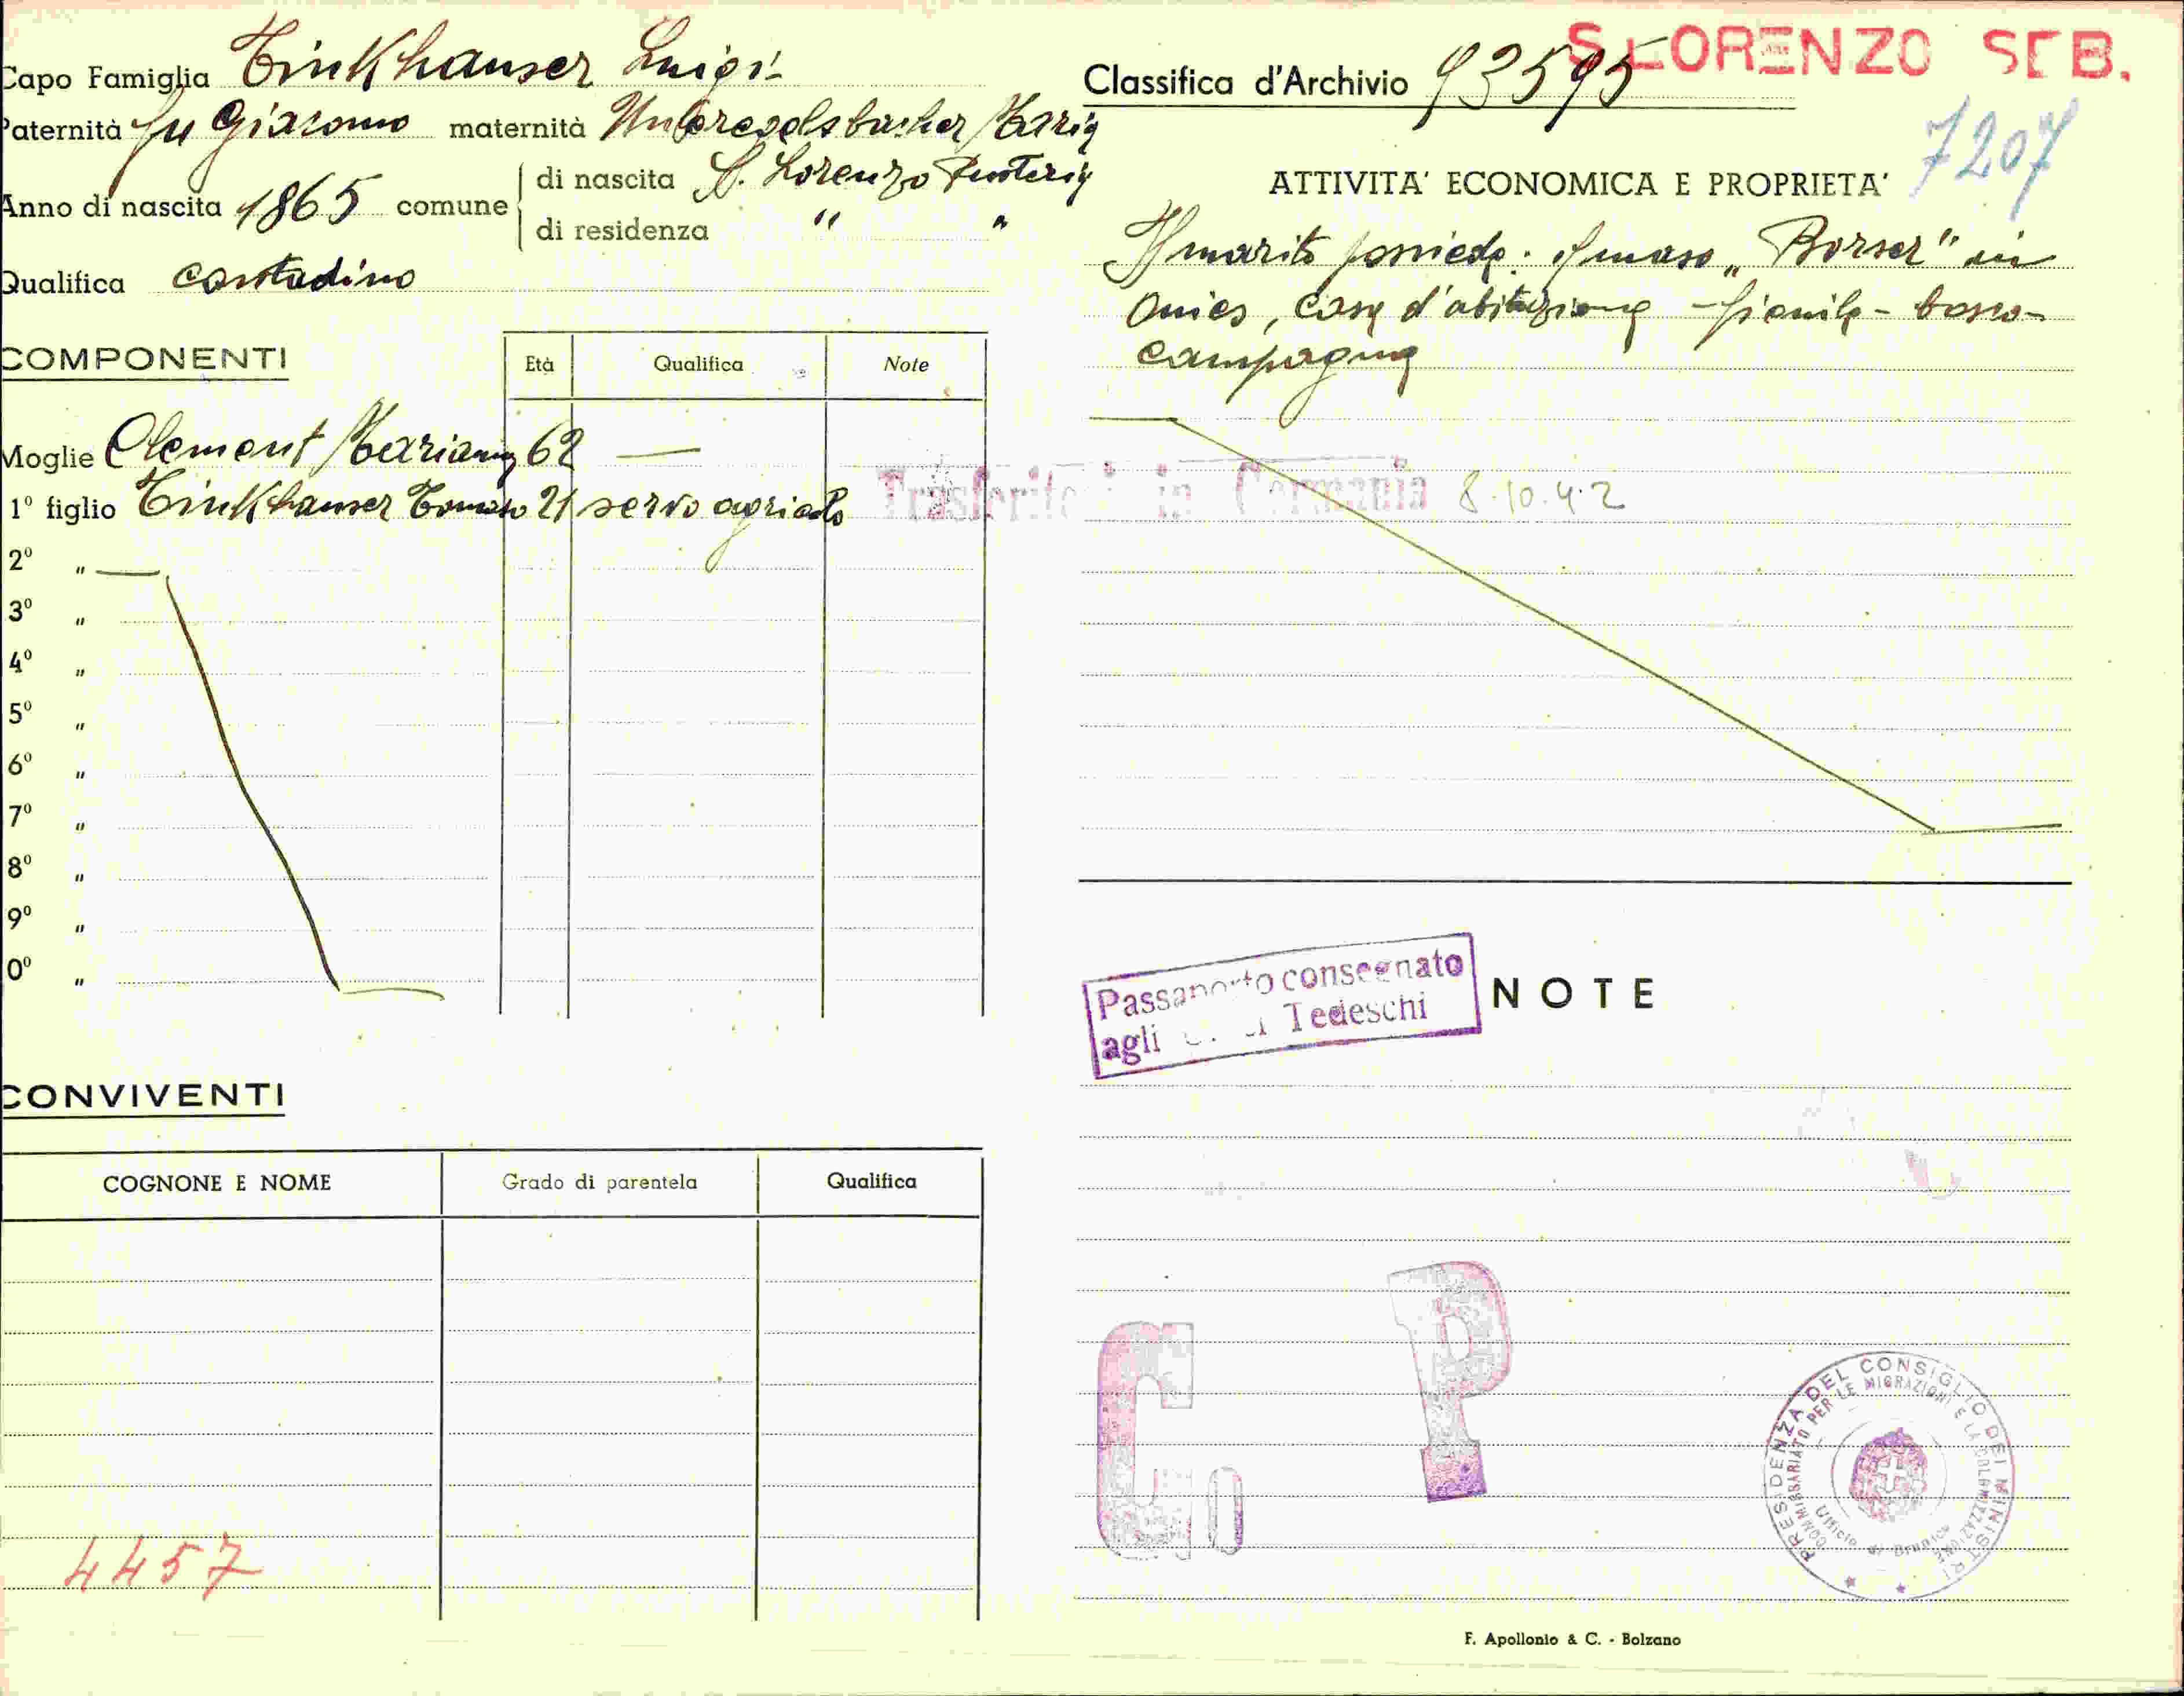 Capo Famiglia Tinkhauser Luigi
Paternità fu Giacomo maternità Unteregelsbacher Maria
Anno di nascita 1865 comune di nascita S. Lorenzo Pusteria
di residenza " "
Qualifica contadino
COMPONENTI
Età Qualifica Note
Moglie Clement Marianna 62 —
1º figlio Tinkhauser Tomaso 21 servo agricolo
2º "
3º "
4º "
5º "
6º "
7º "
8º "
9º "
0º "
CONVIVENTI
COGNONE E NOME Grado di parentela Qualifica
4457
S. LORENZO SEB.
Classifica d'Archivio 93595
7207
ATTIVITA' ECONOMICA E PROPRIETA'
Il marito possiede: il maso „Borser" in
Onies, casa d'abitazione - fienile - bosco -
campagna
Trasferito in Germania 8.10.42
Passaporto consegnato
agli Tedeschi
NOTE
G P
PRESIDENZA DEL CONSIGLIO DEI MINISTRI
COMMISSARIATO PER LE MIGRAZIONI E LA COLONIZZAZIONE
Ufficio di Brunico
F. Apollonio & C. - Bolzano